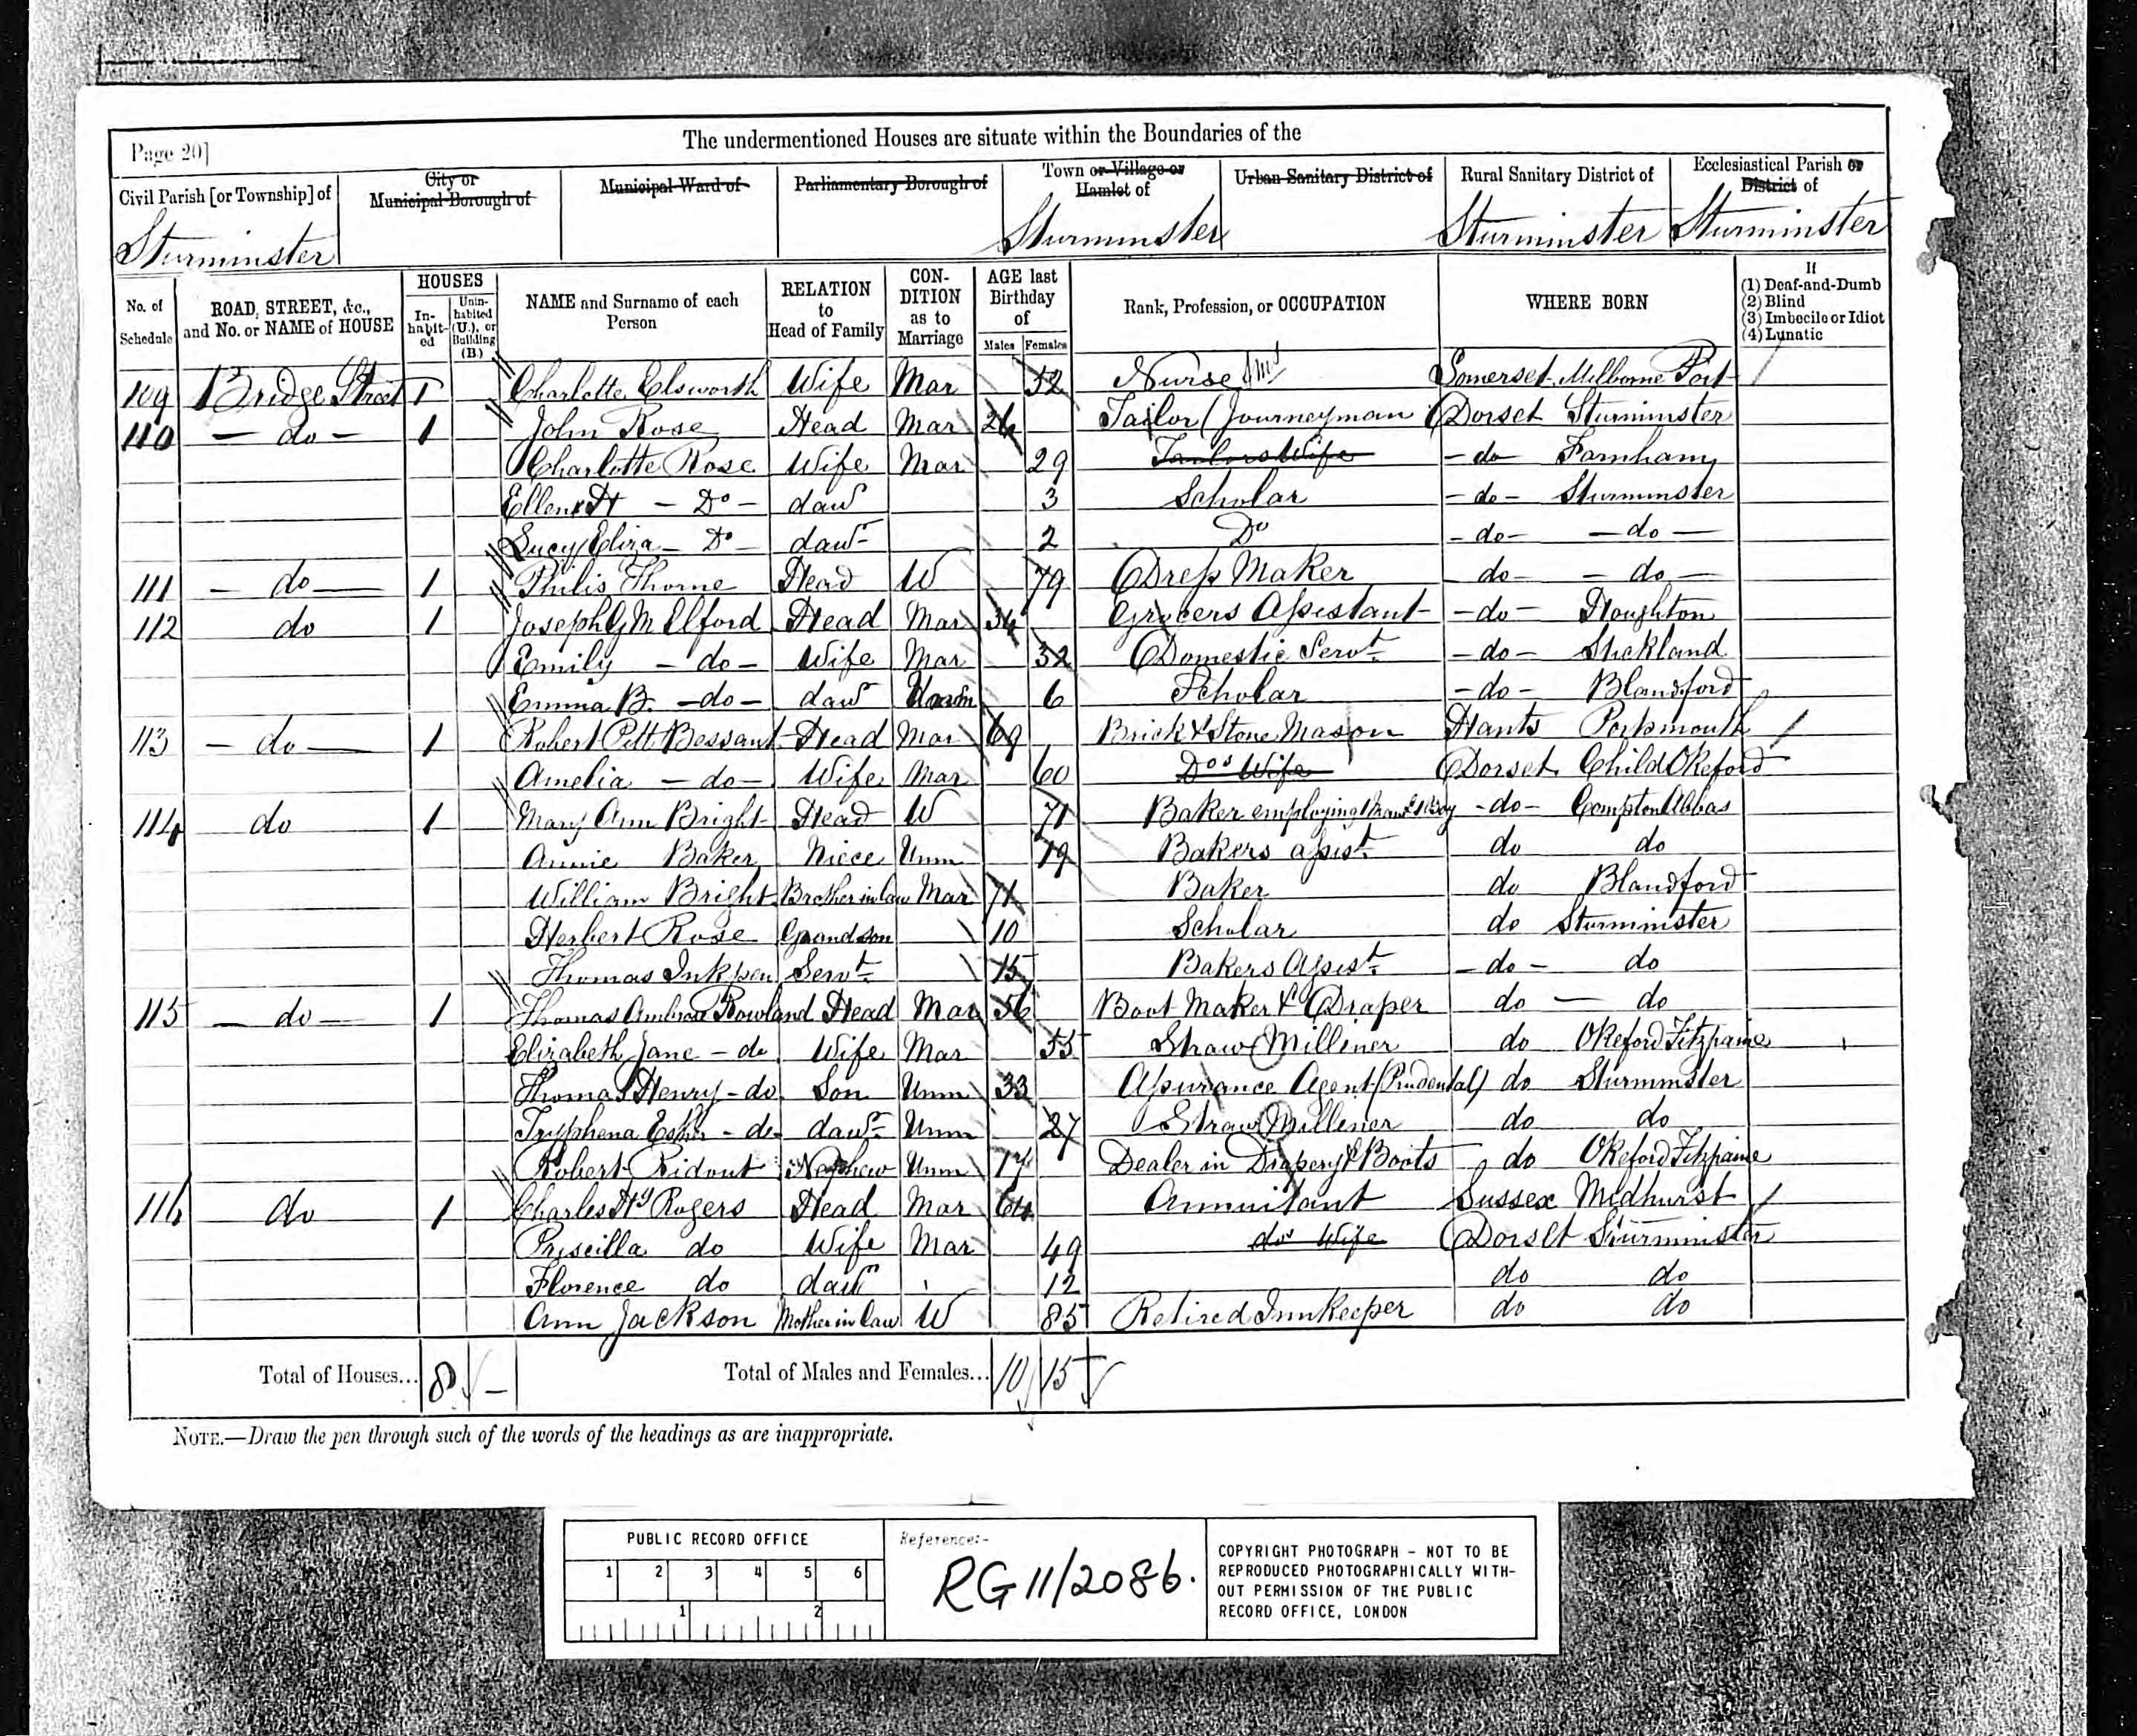 The undermentioned Houses are situate within the Boundaries of the
Page 20]
Civil Parish [or Township] of
City or Municipal Borough of
Municipal Ward of
Parliamentary Borough of
Town or Village or Hamlet of
Urban Sanitary District of
Rural Sanitary District of
Ecclesiastical Parish or District of
Sturminster Sturminster Sturminster Sturminster
No. of Schedule
ROAD, STREET, &c., and No. or NAME of HOUSE
HOUSES
In-habit-ed
Unin-habited (U.), or Building (B.)
NAME and Surname of each Person
RELATION to Head of Family
CON-DITION as to Marriage
AGE last Birthday of
Males Females
Rank, Profession, or OCCUPATION
WHERE BORN
If
(1) Deaf-and-Dumb
(2) Blind
(3) Imbecile or Idiot
(4) Lunatic
109 Bridge Street 1 Charlotte Elsworth Wife Mar 52 Nurse Somerset Milborne Port
110 - do - 1 John Rose Head Mar 26 Tailor (Journeyman Dorset Sturminster
Charlotte Rose Wife Mar 29 Tailors Wife - do - Farnham
Ellen H - Do - daur 3 Scholar - do - Sturminster
Lucy Eliza - Do - daur 2 Do - do - - do -
111 - do - 1 Philis Thorne Head W 79 Dress Maker do - - do -
112 do 1 Joseph G M Elford Head Mar 34 Grocers Assistant - do - Houghton
Emily - do - Wife Mar 32 Domestic Servt - do - Stickland
Emma B. - do - daur Unm 6 Scholar - do - Blandford
113 - do - 1 Robert Pitt Bessant Head Mar 69 Brick & Stone Mason Hants Portsmouth
Amelia - do - Wife Mar 60 Dos Wife Dorset Child Okeford
114 do 1 Mary Ann Bright Head W 71 Baker employing 1 man & 1 Boy - do - Compton Abbas
Annie Baker Niece Unm 19 Bakers assist do do
William Bright Brother in law Mar 71 Baker do Blandford
Herbert Rose Grandson 10 Scholar do Sturminster
Thomas Inkpen Servt 15 Bakers Assist - do - do
115 - do - 1 Thomas Ambrose Rowland Head Mar 56 Boot Maker & Draper do - do
Elizabeth Jane - do Wife Mar 55 Straw Milliner do Okeford Fitzpaine
Thomas Henry - do Son Unm 33 Assurance Agent (Prudential) do Sturminster
Tryphena Esther - do - daur Unm 27 Straw Millener do do
Robert Ridout Nephew Unm 17 Dealer in Drapery & Boots do Okeford Fitzpaine
116 do 1 Charles Hy Rogers Head Mar 64 Annuitant Sussex Midhurst
Priscilla do Wife Mar 49 dos Wife Dorset Sturminster
Florence do daur 12 do do
Ann Jackson Mother in law W 85 Retired Innkeeper do do
Total of Houses... 8 - Total of Males and Females... 10 15
NOTE.—Draw the pen through such of the words of the headings as are inappropriate.
PUBLIC RECORD OFFICE
1 2 3 4 5 6
1 2
Reference:-
RG 11/2086.
COPYRIGHT PHOTOGRAPH - NOT TO BE
REPRODUCED PHOTOGRAPHICALLY WITH-
OUT PERMISSION OF THE PUBLIC
RECORD OFFICE, LONDON